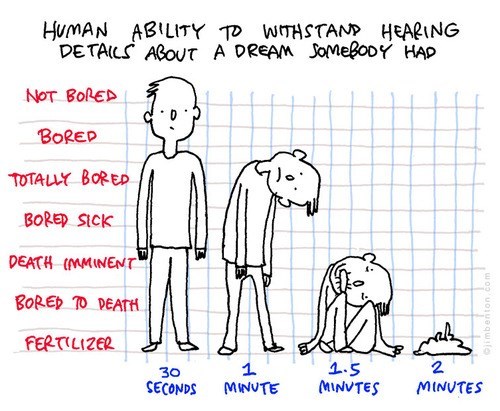 HUMAN ABILITY TO WITHSTAND HEARING
DETAILS ABOUT A DREAM SOMEBODY HAD
NOT BORED
BORED
TOTALLY BORED
BORED SICK
DEATH IMMINENT
BORED TO DEATH
FERTILIZER
30 SECONDS
1 MINUTE
1.5 MINUTES
2 MINUTES
©jimbenton.com